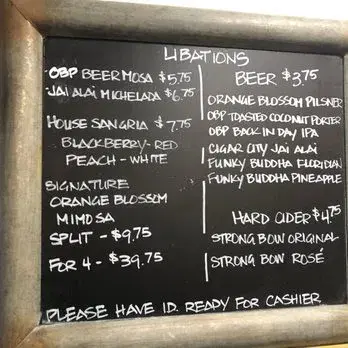 LIBATIONS
OBP BEERMOSA $5.75
JAI ALAI MICHELADA $6.75
HOUSE SANGRIA $7.75
BLACKBERRY - RED
PEACH - WHITE
SIGNATURE
ORANGE BLOSSOM
MIMOSA
SPLIT - $9.75
FOR 4 - $39.75
BEER $3.75
ORANGE BLOSSOM PILSNER
OBP TOASTED COCONUT PORTER
OBP BACK IN DAY IPA
CIGAR CITY JAI ALAI
FUNKY BUDDHA FLORIDIAN
FUNKY BUDDHA PINEAPPLE
HARD CIDER $4.75
STRONG BOW ORIGINAL
STRONG BOW ROSÉ
PLEASE HAVE I.D. READY FOR CASHIER